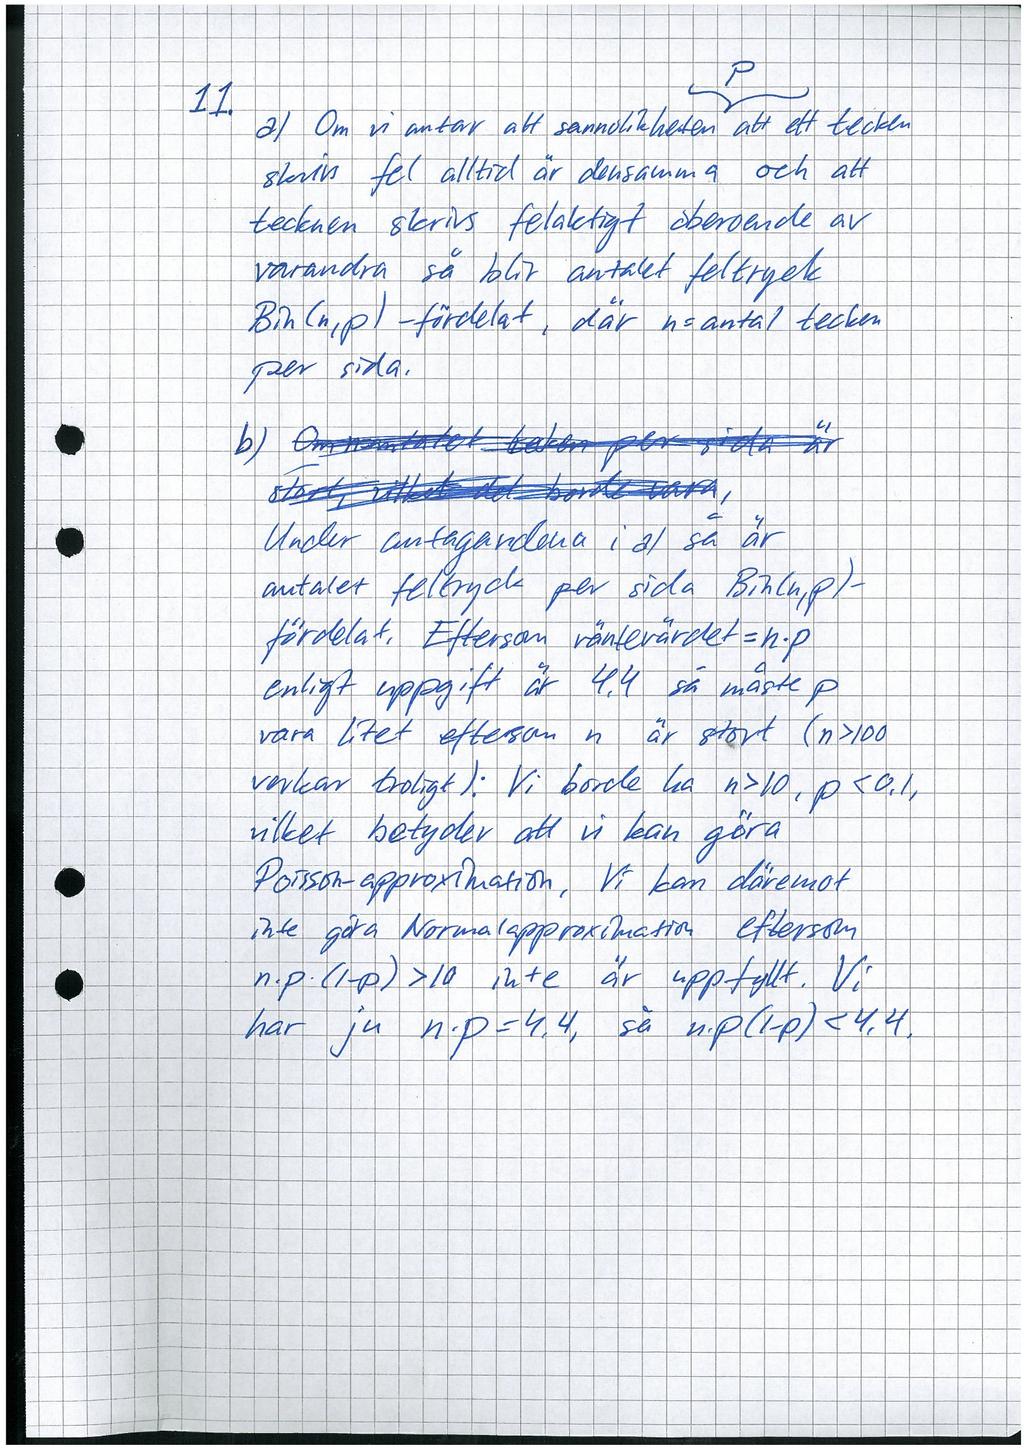 P
11.
a) Om vi antar att sannolikheten att ett tecken
skrivs fel alltid är densamma och att
tecknen skrivs felaktigt oberoende av
varandra så blir antalet feltryck
Bin(n,p)-fördelat, där n=antal tecken
per sida.
b) Om n=antalet tecken per sida är
stort, vilket det borde vara,
Under antagandena i a) så är
antalet feltryck per sida Bin(n,p)-
fördelat. Eftersom väntevärdet=n·p
enligt uppgift är 4,4 så måste p
vara litet eftersom n är stort (n>100
verkar troligt): Vi borde ha n>10, p<0.1,
vilket betyder att vi kan göra
Poisson-approximation. Vi kan däremot
inte göra Normalapproximation eftersom
n·p·(1-p)>10 inte är uppfyllt. Vi
har ju n·p=4,4, så n·p(1-p)<4,4.